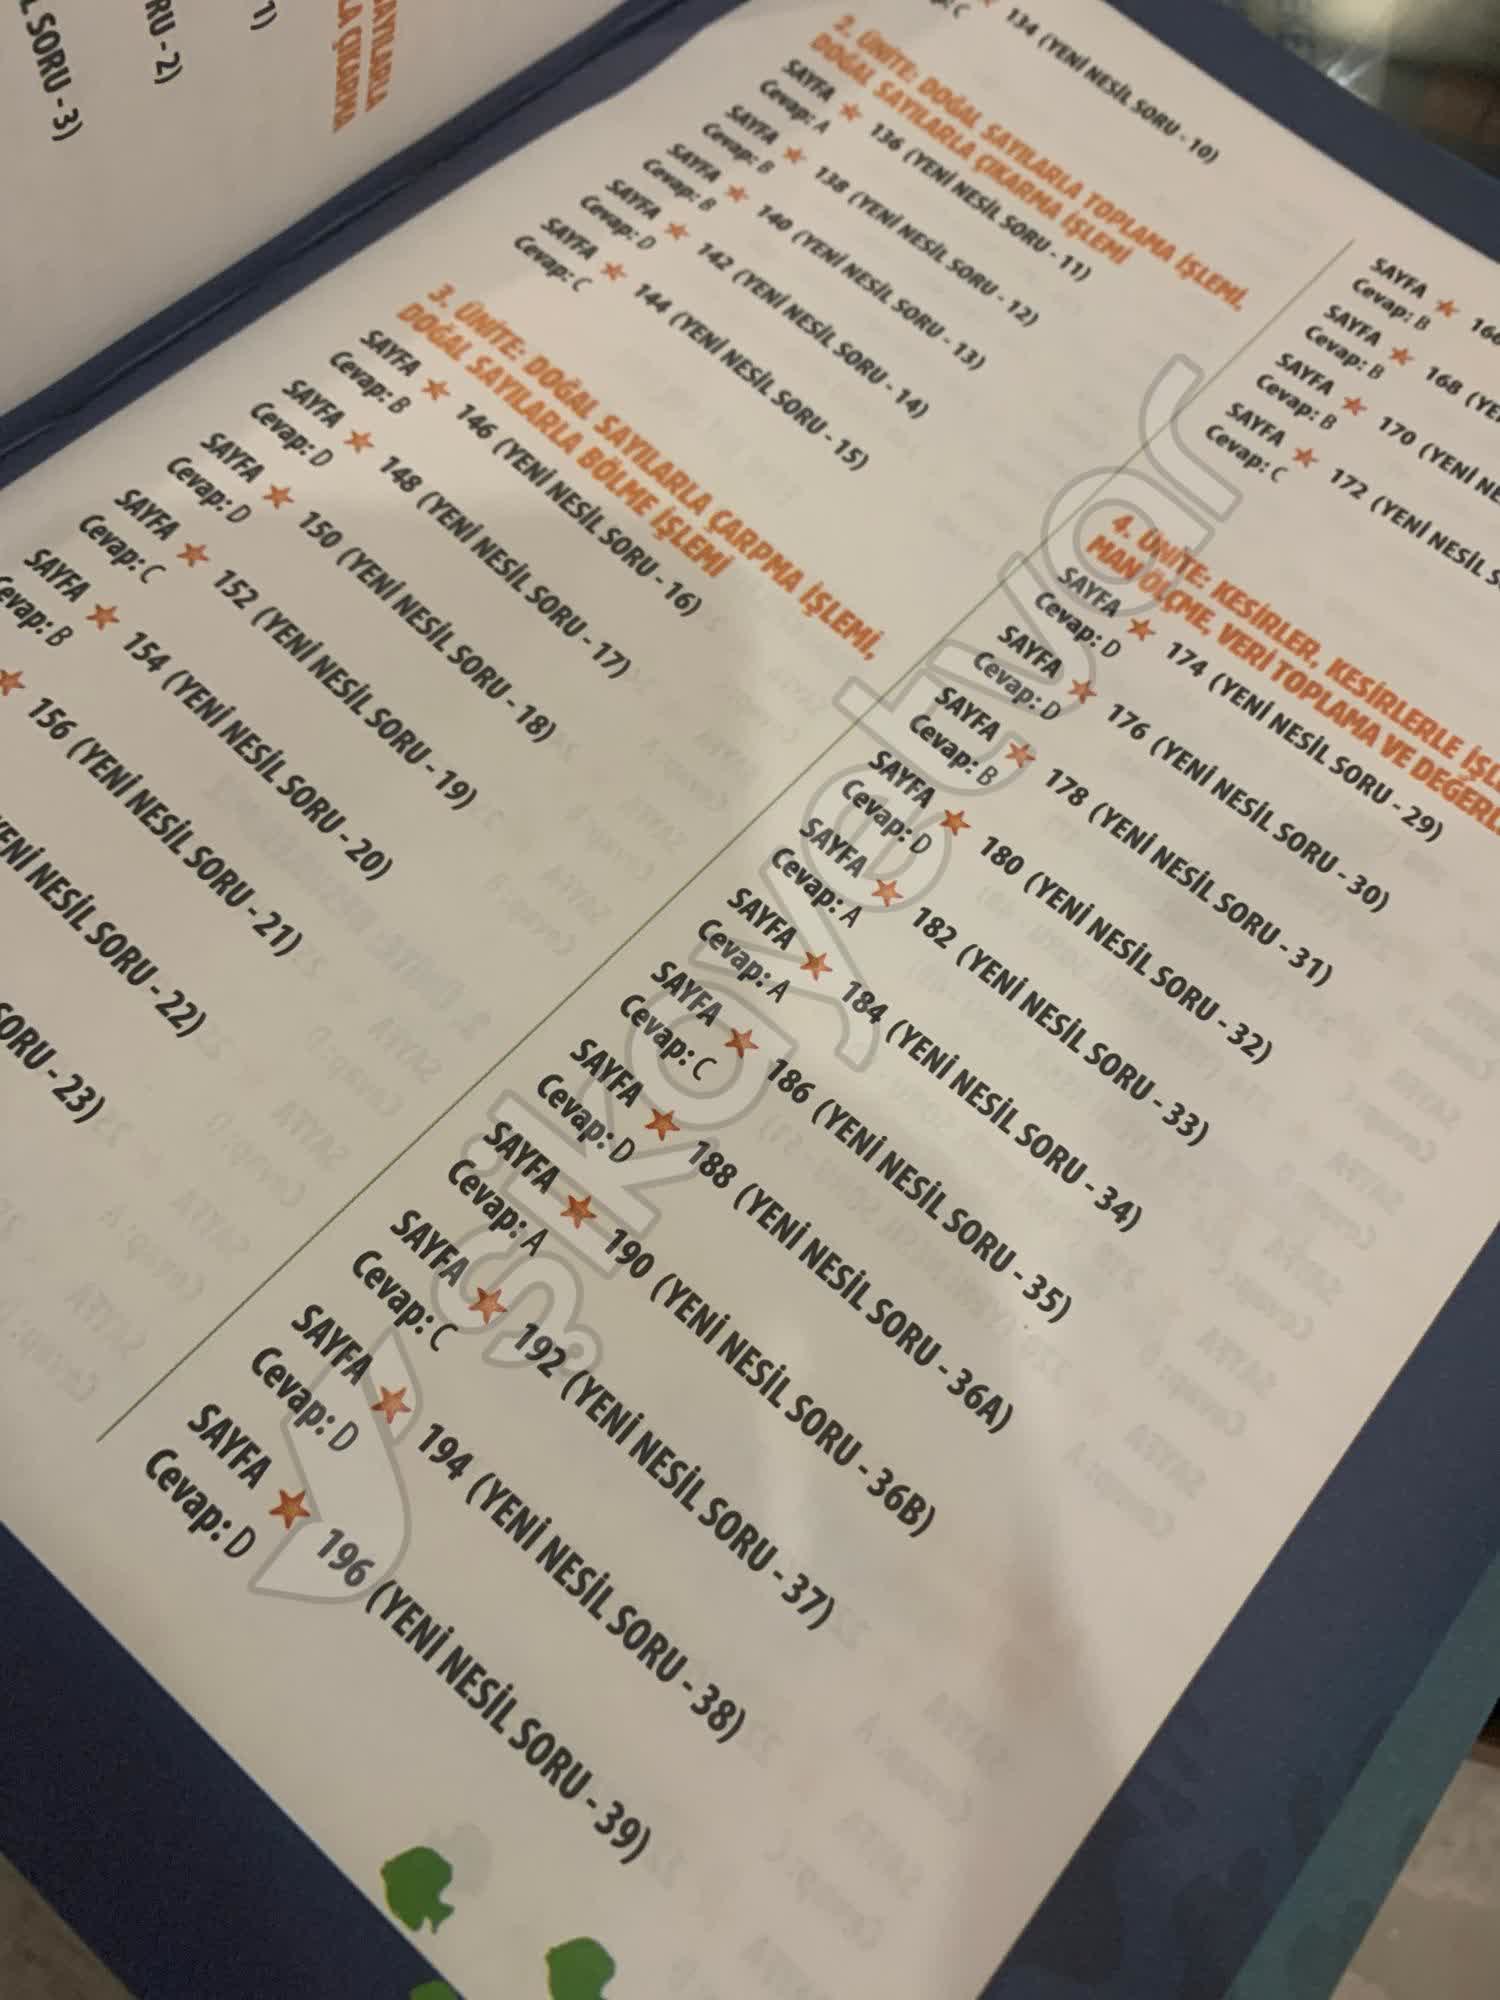 L SORU - 3)
RU - 2)
1)
SAYILARLA
LA ÇIKARMA
134 (YENİ NESİL SORU - 10)
2. ÜNİTE: DOĞAL SAYILARLA TOPLAMA İŞLEMİ,
DOĞAL SAYILARLA ÇIKARMA İŞLEMİ
SAYFA 136 (YENİ NESİL SORU - 11)
Cevap: A
SAYFA 138 (YENİ NESİL SORU - 12)
Cevap: B
SAYFA 140 (YENİ NESİL SORU - 13)
Cevap: B
SAYFA 142 (YENİ NESİL SORU - 14)
Cevap: D
SAYFA 144 (YENİ NESİL SORU - 15)
Cevap: C
3. ÜNİTE: DOĞAL SAYILARLA ÇARPMA İŞLEMİ,
DOĞAL SAYILARLA BÖLME İŞLEMİ
SAYFA 146 (YENİ NESİL SORU - 16)
Cevap: B
SAYFA 148 (YENİ NESİL SORU - 17)
Cevap: D
SAYFA 150 (YENİ NESİL SORU - 18)
Cevap: D
SAYFA 152 (YENİ NESİL SORU - 19)
Cevap: C
SAYFA 154 (YENİ NESİL SORU - 20)
Cevap: B
156 (YENİ NESİL SORU - 21)
YENİ NESİL SORU - 22)
SORU - 23)
SAYFA 166
Cevap: B
SAYFA 168 (YE
Cevap: B
SAYFA 170 (YENİ NE
Cevap: B
SAYFA 172 (YENİ NESİL S
Cevap: C
4. ÜNİTE: KESİRLER, KESİRLERLE İŞL
MAN ÖLÇME, VERİ TOPLAMA VE DEĞERL
SAYFA 174 (YENİ NESİL SORU - 29)
Cevap: D
SAYFA 176 (YENİ NESİL SORU - 30)
Cevap: D
SAYFA 178 (YENİ NESİL SORU - 31)
Cevap: B
SAYFA 180 (YENİ NESİL SORU - 32)
Cevap: D
SAYFA 182 (YENİ NESİL SORU - 33)
Cevap: A
SAYFA 184 (YENİ NESİL SORU - 34)
Cevap: A
SAYFA 186 (YENİ NESİL SORU - 35)
Cevap: C
SAYFA 188 (YENİ NESİL SORU - 36A)
Cevap: D
SAYFA 190 (YENİ NESİL SORU - 36B)
Cevap: A
SAYFA 192 (YENİ NESİL SORU - 37)
Cevap: C
SAYFA 194 (YENİ NESİL SORU - 38)
Cevap: D
SAYFA 196 (YENİ NESİL SORU - 39)
Cevap: D
şikayetvar